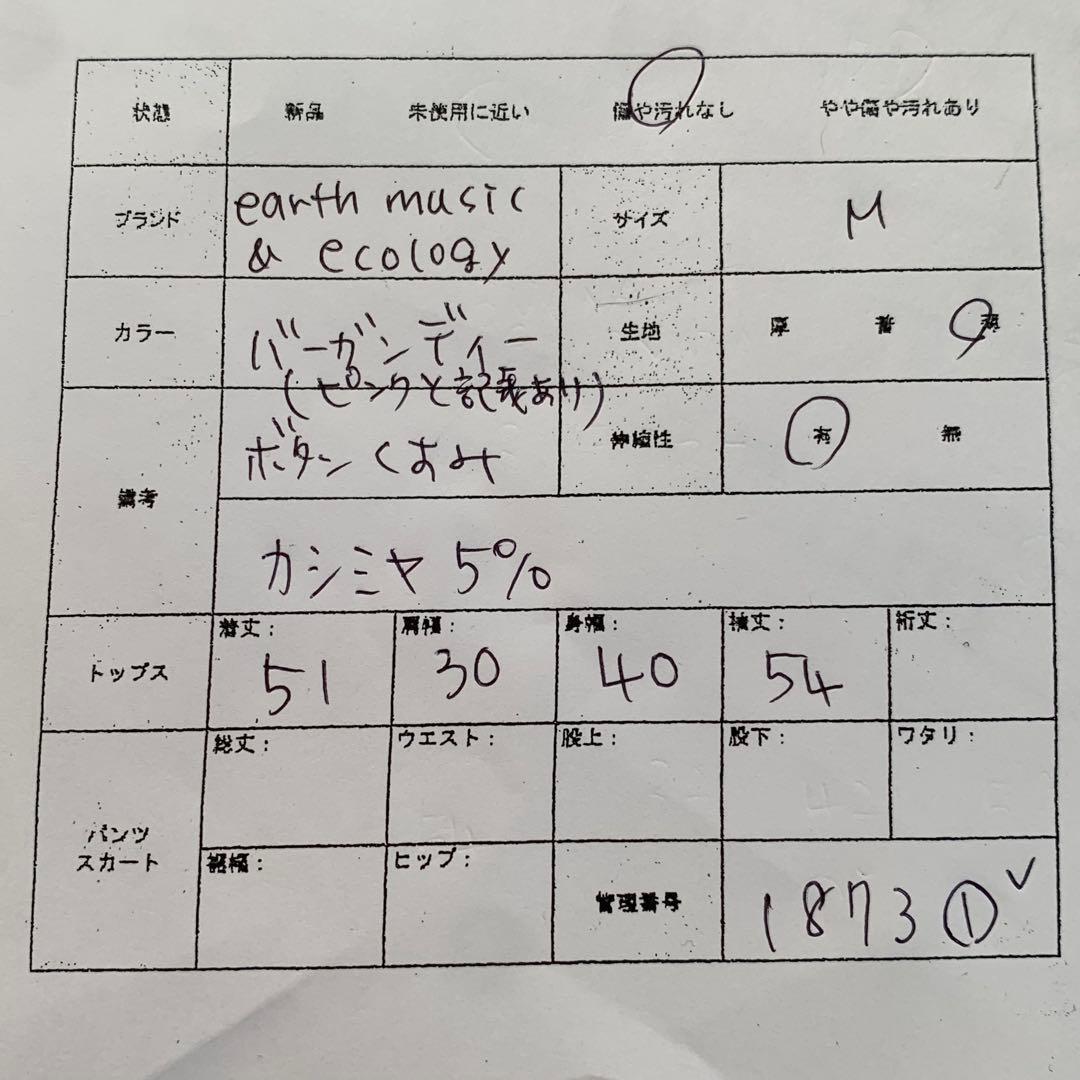 状態 新品 未使用に近い 傷や汚れなし やや傷や汚れあり
ブランド earth music & ecology サイズ M
カラー バーガンディー (ピンクと記載あり) 生地 厚 普 薄
備考 ボタンくすみ 伸縮性 有 無
カシミヤ 5%
トップス 着丈: 51 肩幅: 30 身幅: 40 袖丈: 54 裄丈:
パンツ スカート 総丈: ウエスト: 股上: 股下: ワタリ:
裾幅: ヒップ: 管理番号 1873 ① ✓